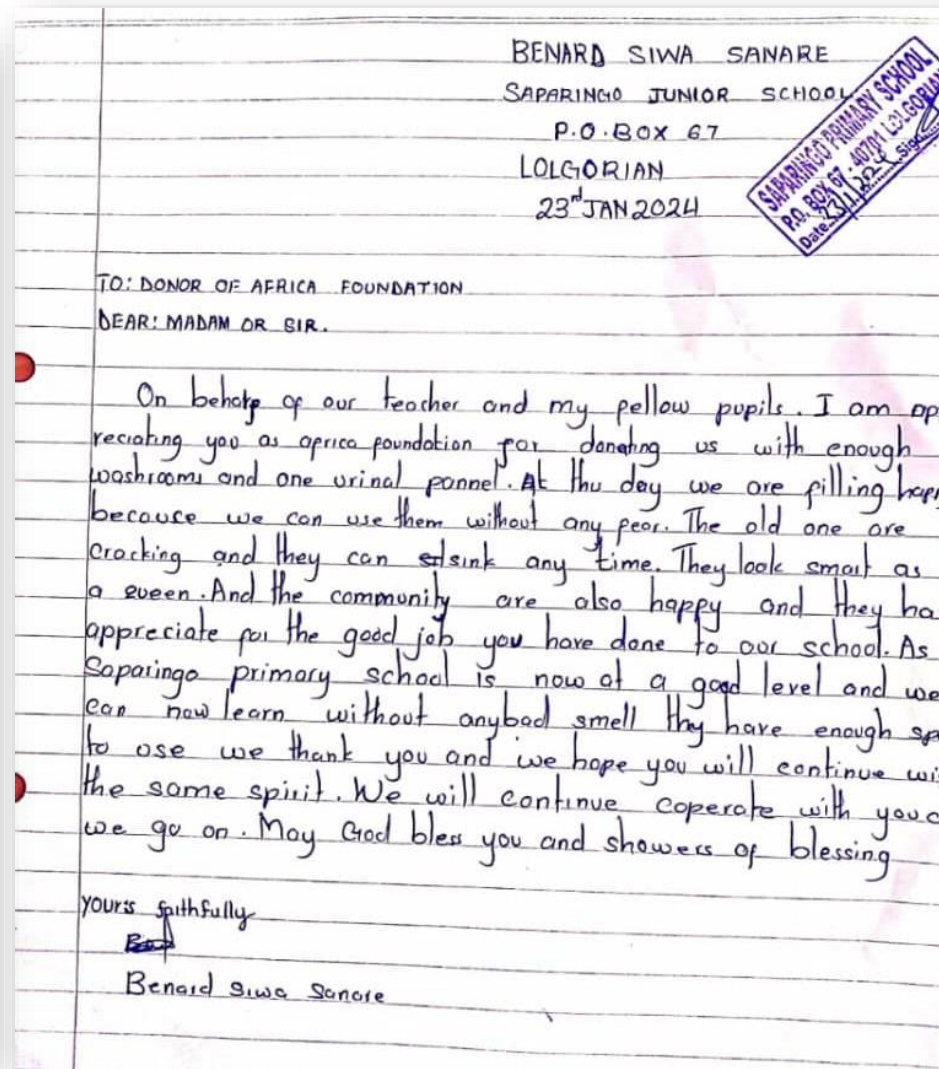 BENARD SIWA SANARE
SAPARINGO JUNIOR SCHOOL
P.O.BOX 67
LOLGORIAN
23rd JAN 2024
SAPARINGO PRIMARY SCHOOL
P.O. BOX 67 - 40701 LOLGORIAN
Date 23/1/2024 Sign
TO: DONOR OF AFRICA FOUNDATION
DEAR: MADAM OR SIR.
On behalf of our teacher and my pellow pupils. I am ap
reciating you as aprica poundation for donating us with enough
washrooms and one urinal pannel. At thu day we are pilling hap
because we can use them without any pear. The old one are
cracking and they can sink any time. They look smart as
a queen. And the community are also happy and they ha
appreciate por the good job you have done to our school. As
Saparingo primary school is now at a good level and we
can now learn without anybad smell thy have enough spa
to use we thank you and we hope you will continue wi
the same spirit. We will continue coperate with you a
we go on. May God bless you and showers of blessing
YOURS faithfully
Benard Siwa Sanare